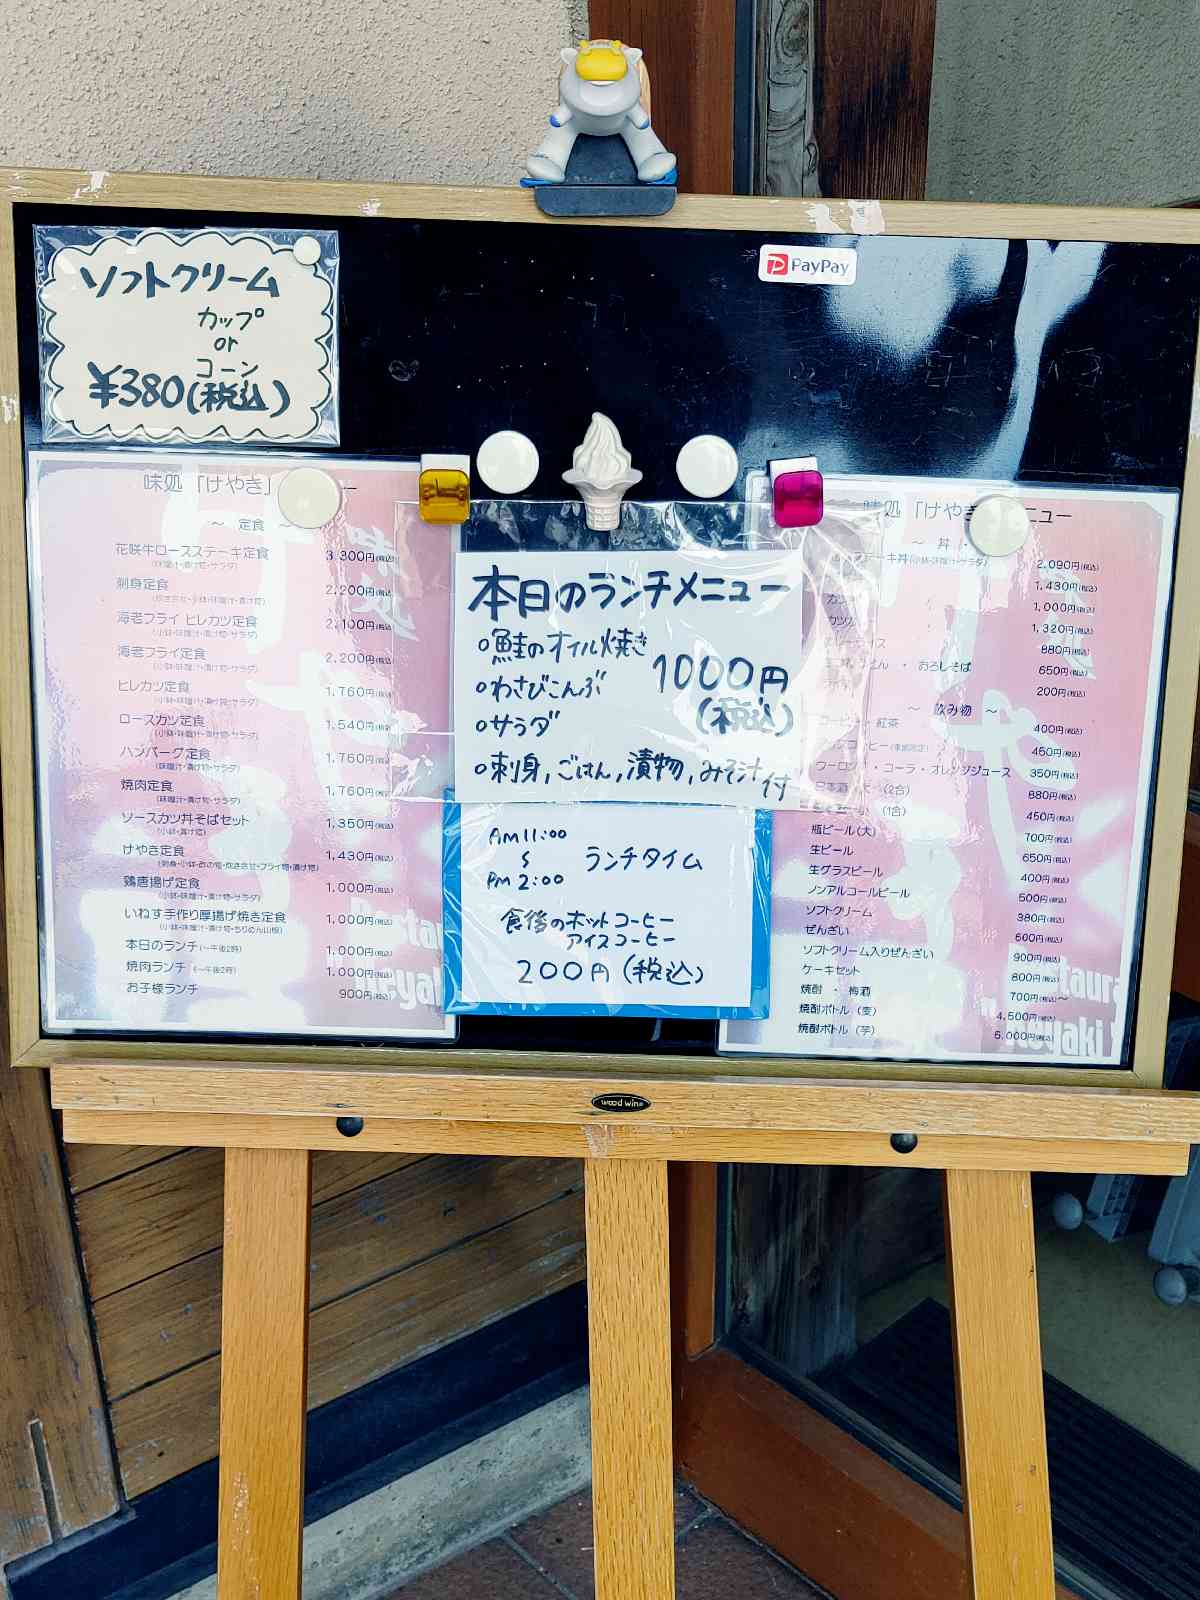 ソフトクリーム
カップ
or
コーン
¥380(税込)
PayPay
味処「けやき」
～ 定食 ～
花咲牛ロースステーキ定食 3,300円(税込)
(味噌汁・漬け物・サラダ)
刺身定食 2,200円(税込)
(炊き合せ・小鉢・味噌汁・漬け物)
海老フライ ヒレカツ定食 2,100円(税込)
(小鉢・味噌汁・漬け物・サラダ)
海老フライ定食 2,200円(税込)
(小鉢・味噌汁・漬け物・サラダ)
ヒレカツ定食 1,760円(税込)
(小鉢・味噌汁・漬け物・サラダ)
ロースカツ定食 1,540円(税込)
(小鉢・味噌汁・漬け物・サラダ)
ハンバーグ定食 1,760円(税込)
(味噌汁・漬け物・サラダ)
焼肉定食 1,760円(税込)
(味噌汁・漬け物・サラダ)
ソースカツ丼そばセット 1,350円(税込)
(小鉢・漬け物)
けやき定食 1,430円(税込)
(刺身・小鉢・酢の物・炊き合せ・フライ物・漬け物)
鶏唐揚げ定食 1,000円(税込)
(小鉢・味噌汁・漬け物・サラダ)
いねす手作り厚揚げ焼き定食 1,000円(税込)
(小鉢・味噌汁・漬け物・ちりめん山椒)
本日のランチ(～午後2時) 1,000円(税込)
焼肉ランチ(～午後2時) 1,000円(税込)
お子様ランチ 900円(税込)
本日のランチメニュー
○鮭のオイル焼き
○わさびこんぶ
○サラダ
1000円
(税込)
○刺身,ごはん,漬物,みそ汁付
AM11:00
～
PM 2:00
ランチタイム
食後のホットコーヒー
アイスコーヒー
200円(税込)
味処「けやき ニュー
～ 丼
テーキ丼(小鉢・味噌汁・サラダ) 2,090円(税込)
1,430円(税込)
1,000円(税込)
1,320円(税込)
880円(税込)
・ おろしそば 650円(税込)
200円(税込)
～ 飲み物 ～
紅茶 400円(税込)
450円(税込)
ウーロン コーラ・オレンジジュース 350円(税込)
日本酒 (2合) 880円(税込)
(1合) 450円(税込)
瓶ビール(大) 700円(税込)
生ビール 650円(税込)
生グラスビール 400円(税込)
ノンアルコールビール 500円(税込)
ソフトクリーム 380円(税込)
ぜんざい 600円(税込)
ソフトクリーム入りぜんざい 900円(税込)
ケーキセット 800円(税込)
焼酎 ・ 梅酒 700円(税込)～
焼酎ボトル(麦) 4,500円(税込)
焼酎ボトル(芋) 5,000円(税込)
wood wine